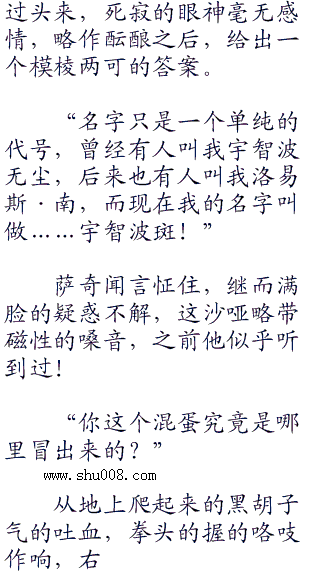 过头来，死寂的眼神毫无感
情，略作酝酿之后，给出一
个模棱两可的答案。
“名字只是一个单纯的
代号，曾经有人叫我宇智波
无尘，后来也有人叫我洛易
斯·南，而现在我的名字叫
做……宇智波斑！”
萨奇闻言怔住，继而满
脸的疑惑不解，这沙哑略带
磁性的嗓音，之前他似乎听
到过！
“你这个混蛋究竟是哪
里冒出来的？”
www.shu008.com
从地上爬起来的黑胡子
气的吐血，拳头的握的咯吱
作响，右